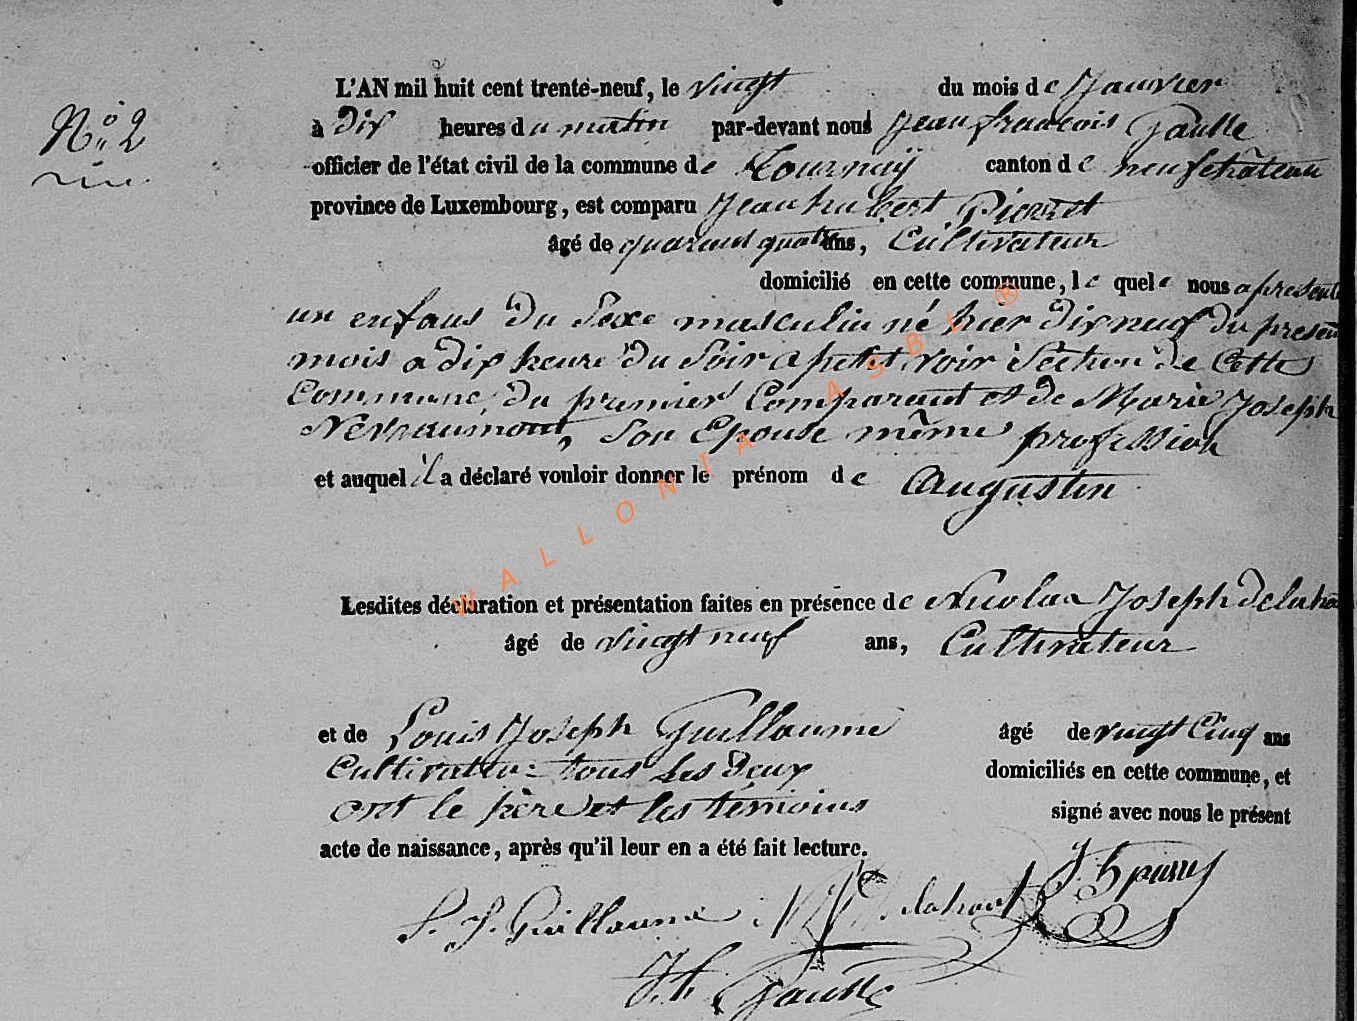 N° 2
L'AN mil huit cent trente-neuf, le vingt du mois de Janvier
à dix heures du matin par-devant nous Jean françois Gaulle
officier de l'état civil de la commune de Tournaÿ canton de neufchâteau
province de Luxembourg, est comparu Jean hubert Pierret
âgé de quarant quatre ans, Cultivateur
domicilié en cette commune, le quele nous a présenté
un enfans du Sexe masculin né hier dix neuf du présent
mois a dix heure du Soir a petit voir Section de Cette
Commune, du premier Comparant et de Marie Joseph
Nevraumont, Son Epouse même profession
et auquel il a déclaré vouloir donner le prénom de Augustin
Lesdites déclaration et présentation faites en présence de Nicolas Joseph Delaho
âgé de vingt neuf ans, Cultivateur
et de Louis Joseph Guillaume âgé de vingt Cinq ans
Cultivateur tous les deux domiciliés en cette commune, et
ont le père et les témoins signé avec nous le présent
acte de naissance, après qu'il leur en a été fait lecture.
L. J. Guillaume N. J. delahaut
J. f. Gaulle
WALLONIA ASBL ®